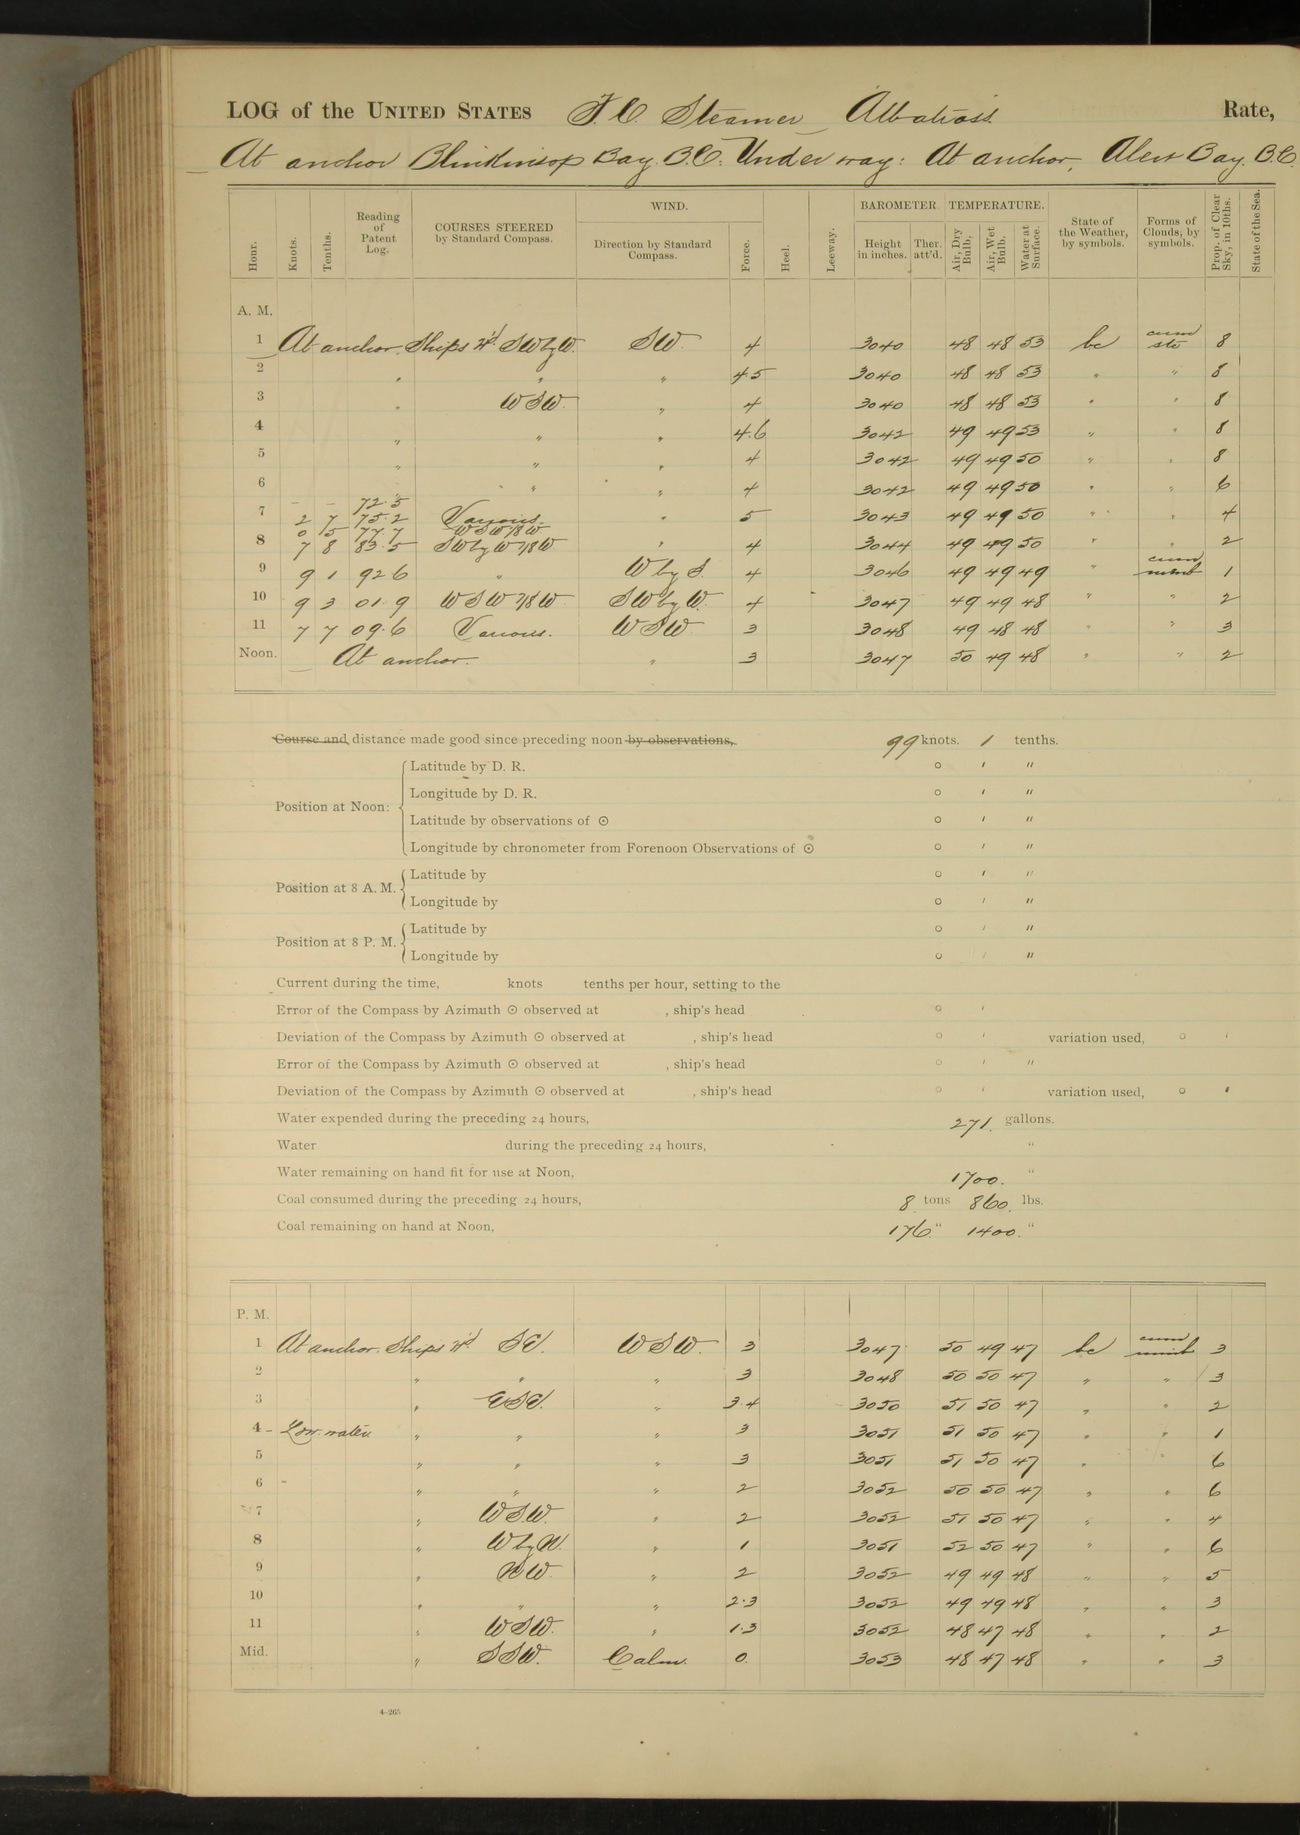 LOG of the UNITED STATES F. C. Steamer Albatross Rate,
At anchor Blinkinsop Bay. B.C: Under way: At anchor, Alert Bay. B.C.
WIND. BAROMETER. TEMPERATURE.
Hour. Knots. Tenths. Reading of Patent Log. COURSES STEERED by Standard Compass. Direction by Standard Compass. Force. Heel. Leeway. Height in inches. Ther. att'd. Air, Dry Bulb. Air, Wet Bulb. Water at Surface. State of the Weather, by symbols. Forms of Clouds, by symbols. Prop. of Clear Sky, in 10ths. State of the Sea.
A. M.
1 At anchor. Ship's H'd SW by W. SW. 4 3040 48 48 53 bc cum str 8
2 " " " 4.5 3040 48 48 53 " " 8
3 " WSW. " 4 3040 48 48 53 " " 8
4 " " " 4.6 3042 49 49 53 " " 8
5 " " " 4 3042 49 49 50 " " 8
6 " " " 4 3042 49 49 50 " " 6
- - 72.5
7 2 7 75.2 Various. " 5 3043 49 49 50 " " 4
0 5 77.7 WSW 1/8 W
8 7 8 83.5 SW by W 7/8 W " 4 3044 49 49 50 " " 2
9 9 1 92 6 " W by S. 4 3046 49 49 49 " cum nimb 1
10 9 3 01.9 WSW 7/8 W SW by W. 4 3047 49 49 48 " " 2
11 7 7 09.6 Various. WSW 3 3048 49 48 48 " " 3
Noon. At anchor. " 3 3047 50 49 48 " " 2
Course and distance made good since preceding noon by observations, 99 knots. 1 tenths.
Position at Noon: Latitude by D. R. ° ′ ″
Longitude by D. R. ° ′ ″
Latitude by observations of ⊙ ° ′ ″
Longitude by chronometer from Forenoon Observations of ⊙ ° ′ ″
Position at 8 A. M. Latitude by ° ′ ″
Longitude by ° ′ ″
Position at 8 P. M. Latitude by ° ′ ″
Longitude by ° ′ ″
Current during the time, knots tenths per hour, setting to the
Error of the Compass by Azimuth ⊙ observed at , ship's head ° ′
Deviation of the Compass by Azimuth ⊙ observed at , ship's head ° ′ variation used, ° ′
Error of the Compass by Azimuth ⊙ observed at , ship's head ° ′ ″
Deviation of the Compass by Azimuth ⊙ observed at , ship's head ° ′ variation used, ° ′
Water expended during the preceding 24 hours, 271. gallons.
Water during the preceding 24 hours, "
Water remaining on hand fit for use at Noon, 1700. "
Coal consumed during the preceding 24 hours, 8 tons 860. lbs.
Coal remaining on hand at Noon, 176. " 1400. "
P. M.
1 At anchor. Ship's H'd SE. WSW. 3 3047 50 49 47 bc cum nimb 3
2 " " " 3 3048 50 50 47 " " 3
3 " ESE. " 3.4 3050 51 50 47 " " 2
4 - Low water. " " " 3 3051 51 50 47 " " 1
5 " " " 3 3051 51 50 47 " " 6
6 - " " " 2 3052 50 50 47 " " 6
7 " WSW. " 2 3052 51 50 47 " " 4
8 " W by N. " 1 3051 52 50 47 " " 6
9 " NW. " 2 3052 49 49 48 " " 5
10 " " " 2.3 3052 49 49 48 " " 3
11 " WSW. " 1.3 3052 48 47 48 " " 2
Mid. " SSW. Calm. 0. 3053 48 47 48 " " 3
4-265